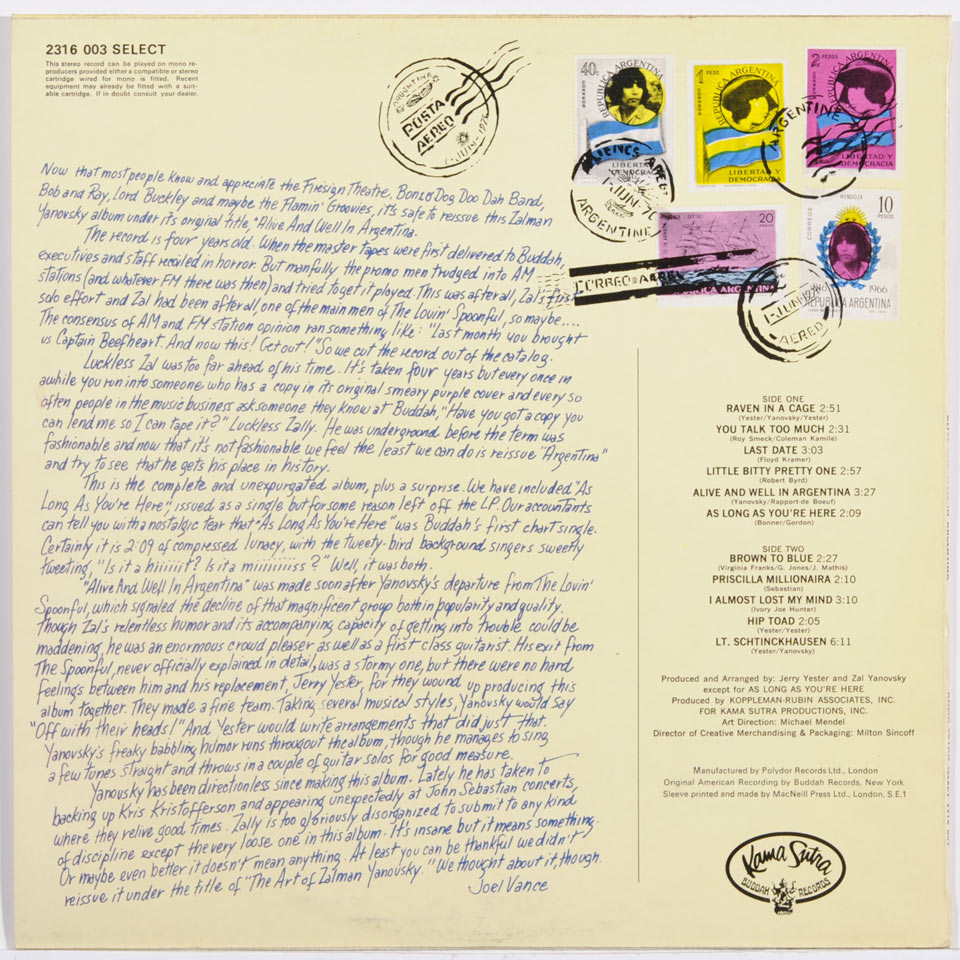 2316 003 SELECT
This stereo record can be played on mono re-
producers provided either a compatible or stereo
cartridge wired for mono is fitted. Recent
equipment may already be fitted with a suit-
able cartridge. If in doubt consult your dealer.
ARGENTINA
POSTA
AEREO
1-JUN-1970
40c
REPUBLICA ARGENTINA
LIBERTAD Y
DEMOCRACIA
PESO
REPUBLICA ARGENTINA
LIBERTAD Y
DEMOCRACIA
2 PESO
REPUBLICA ARGENTINA
LIBERTAD Y
DEMOCRACIA
ARGENTINE
1-JUN-70
ARGENTINE
20
PESOS
ARGENTINA
CORREO AEREO
CORREOS
MENDOZA
10
PESOS
1966
REPUBLICA ARGENTINA
1-JUN-1970
AEREO
Now that most people know and appreciate the Firesign Theatre, Bonzo Dog Doo Dah Band,
Bob and Ray, Lord Buckley and maybe the Flamin' Groovies, it's safe to reissue this Zalman
Yanovsky album under its original title, "Alive And Well In Argentina.
The record is four years old. When the master tapes were first delivered to Buddah,
executives and staff recoiled in horror. But manfully the promo men trudged into AM
stations (and whatever FM there was then) and tried to get it played. This was after all, Zal's first
solo effort and Zal had been after all, one of the main men of The Lovin' Spoonful, so maybe....
The consensus of AM and FM station opinion ran something like: "Last month you brought
us Captain Beefheart. And now this! Get out!" So we cut the record out of the catalog.
Luckless Zal was too far ahead of his time. It's taken four years but every once in
awhile you run into someone who has a copy in its original smeary purple cover and every so
often people in the music business ask someone they know at Buddah, "Have you got a copy you
can lend me so I can tape it?" Luckless Zally. He was underground before the term was
fashionable and now that it's not fashionable we feel the least we can do is reissue "Argentina"
and try to see that he gets his place in history.
This is the complete and unexpurgated album, plus a surprise. We have included "As
Long As You're Here," issued as a single but for some reason left off the LP. Our accountants
can tell you with a nostalgic tear that "As Long As You're Here" was Buddah's first chart single.
Certainly it is 2:09 of compressed lunacy, with the tweety-bird background singers sweetly
tweeting, "Is it a hiiiiiit? Is it a miiiiiiiss?" Well, it was both.
"Alive And Well In Argentina" was made soon after Yanovsky's departure from The Lovin'
Spoonful, which signaled the decline of that magnificent group both in popularity and quality.
Though Zal's relentless humor and its accompanying capacity of getting into trouble could be
maddening, he was an enormous crowd pleaser as well as a first class guitarist. His exit from
The Spoonful, never officially explained in detail, was a stormy one, but there were no hard
feelings between him and his replacement, Jerry Yester, for they wound up producing this
album together. They made a fine team. Taking several musical styles, Yanovsky would say
"Off with their heads!" And Yester would write arrangements that did just that.
Yanovsky's freaky babbling humor runs througout the album, though he manages to sing
a few tunes straight and throws in a couple of guitar solos for good measure.
Yanovsky has been directionless since making this album. Lately he has taken to
backing up Kris Kristofferson and appearing unexpectedly at John Sebastian concerts,
where they relive good times. Zally is too gloriously disorganized to submit to any kind
of discipline except the very loose one in this album. It's insane but it means something.
Or maybe even better it doesn't mean anything. At least you can be thankful we didn't
reissue it under the title of "The Art of Zalman Yanovsky." We thought about it, though.
Joel Vance
SIDE ONE
RAVEN IN A CAGE 2:51
(Yester/Yanovsky/Yester)
YOU TALK TOO MUCH 2:31
(Roy Smeck/Coleman Kamile)
LAST DATE 3:03
(Floyd Kramer)
LITTLE BITTY PRETTY ONE 2:57
(Robert Byrd)
ALIVE AND WELL IN ARGENTINA 3:27
(Yanovsky/Rapport-de Boeuf)
AS LONG AS YOU'RE HERE 2:09
(Bonner/Gordon)
SIDE TWO
BROWN TO BLUE 2:27
(Virginia Franks/G. Jones/J. Mathis)
PRISCILLA MILLIONAIRA 2:10
(Sebastian)
I ALMOST LOST MY MIND 3:10
(Ivory Joe Hunter)
HIP TOAD 2:05
(Yester/Yester)
LT. SCHTINCKHAUSEN 6:11
(Yester/Yanovsky)
Produced and Arranged by: Jerry Yester and Zal Yanovsky
except for AS LONG AS YOU'RE HERE
Produced by KOPPLEMAN-RUBIN ASSOCIATES, INC.
FOR KAMA SUTRA PRODUCTIONS, INC.
Art Direction: Michael Mendel
Director of Creative Merchandising & Packaging: Milton Sincoff
Manufactured by Polydor Records Ltd., London
Original American Recording by Buddah Records, New York
Sleeve printed and made by MacNeill Press Ltd., London, S.E.1
Kama Sutra
BUDDAH RECORDS